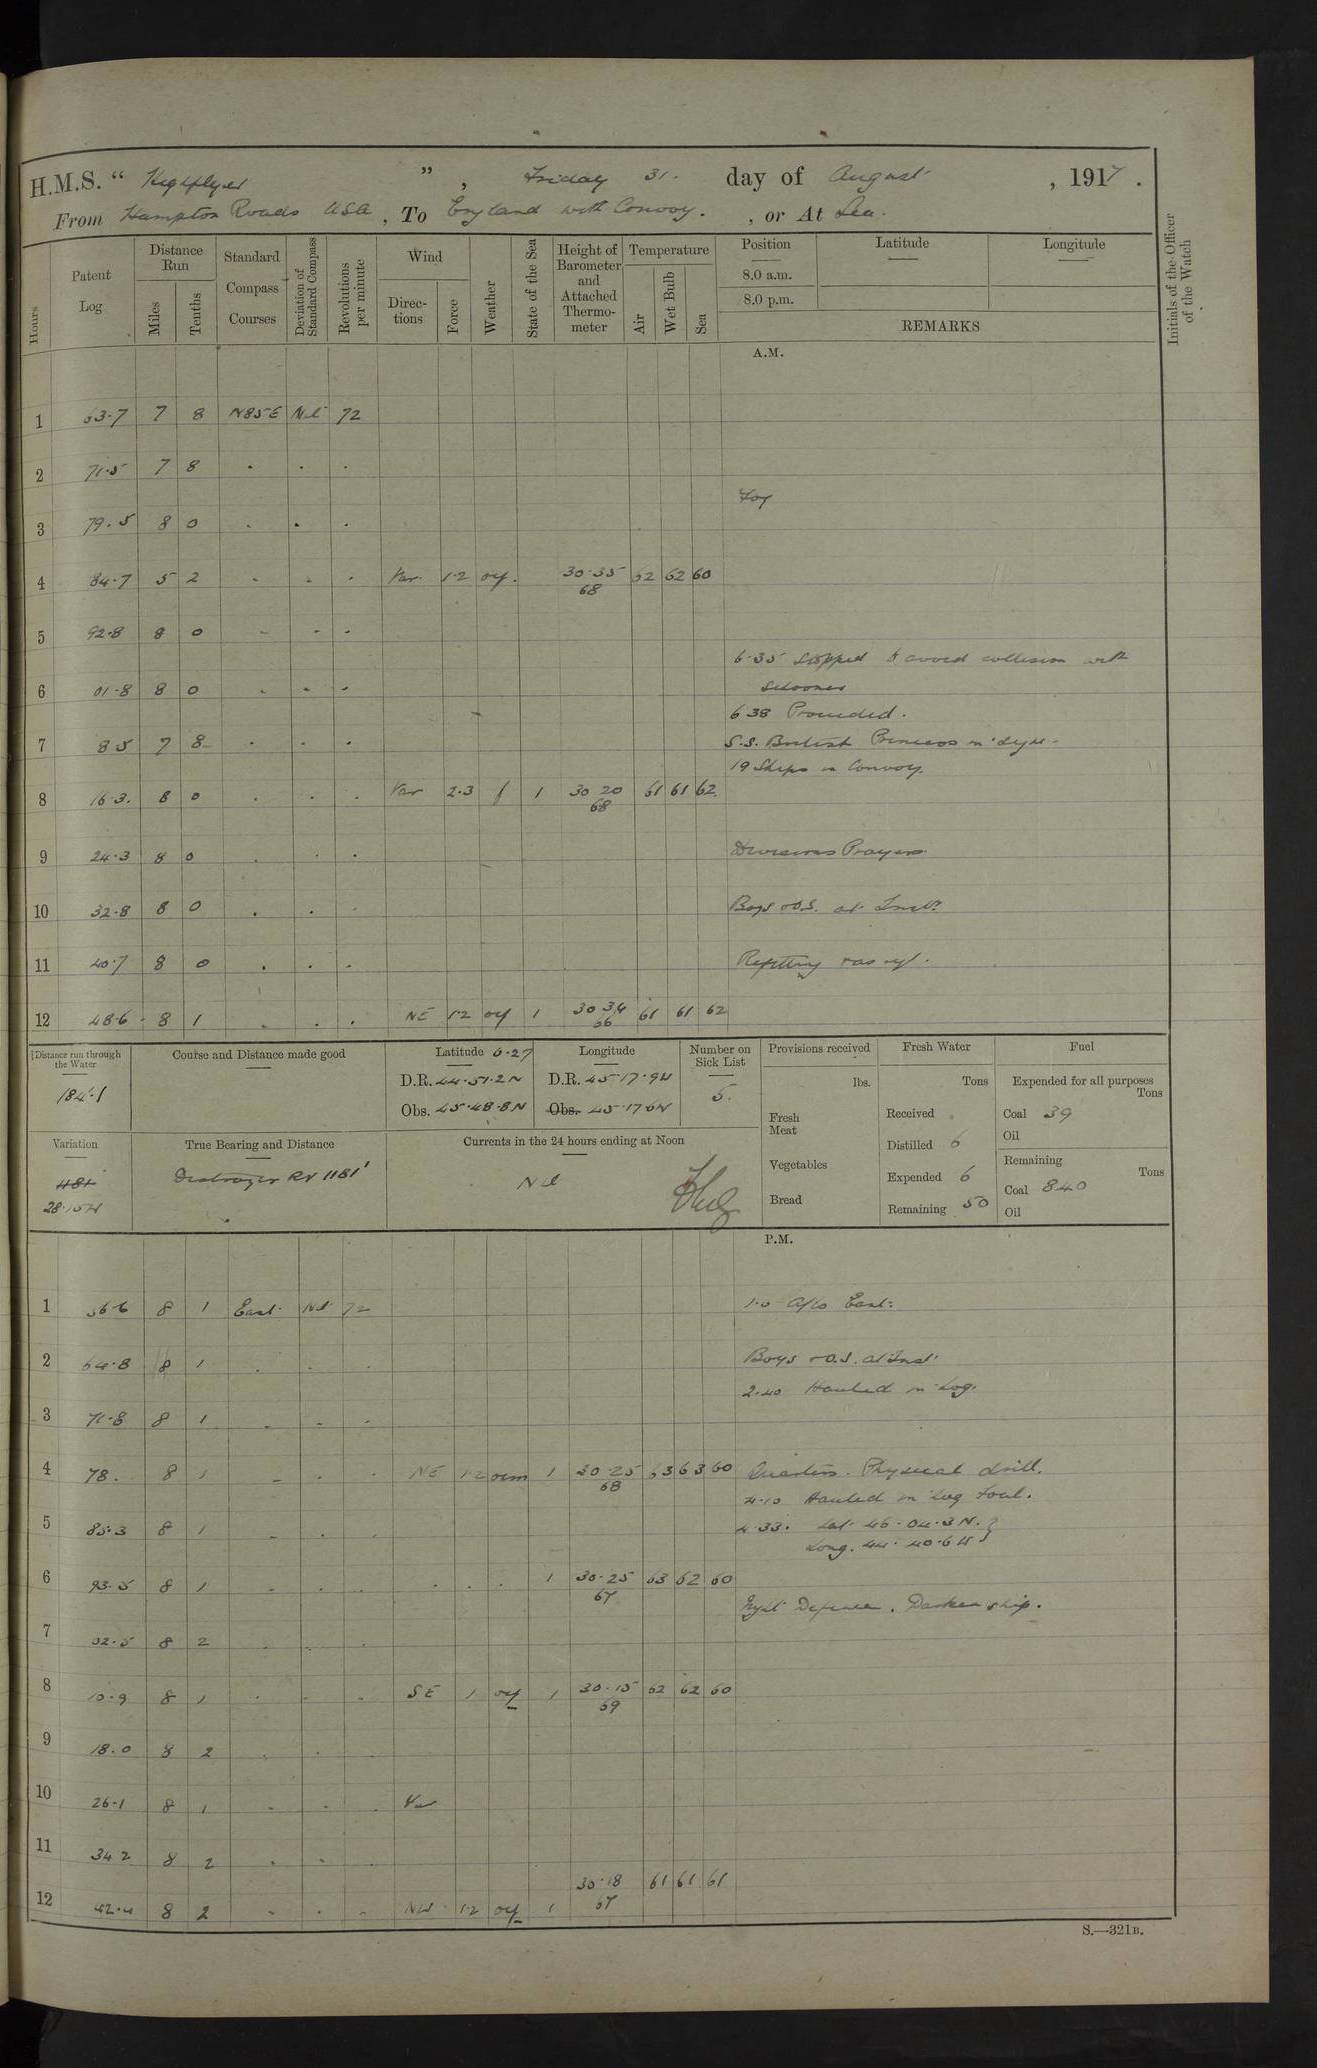 H.M.S. “ Highflyer ” , Friday 31. day of August , 1917 .
From Hampton Roads USA , To England with Convoy. , or At Sea.
Hours
Patent Log
Distance Run
Miles
Tenths
Standard Compass Courses
Deviation of Standard Compass
Revolutions per minute
Wind
Directions
Force
Weather
State of the Sea
Height of Barometer and Attached Thermometer
Temperature
Air
Wet Bulb
Sea
Position
8.0 a.m.
8.0 p.m.
Latitude
Longitude
REMARKS
Initials of the Officer of the Watch
A.M.
1 63·7 7 8 N85E Nil 72
2 71·5 7 8 . . .
Fog
3 79·5 8 0 . . .
4 84·7 5 2 . . . Var. 1·2 of. 30·35 62 62 60
68
5 92·8 8 0 . . .
6·35 Stopped to avoid collision with
6 01·8 8 0 . . .
Schooner
6·38 Proceeded.
7 8 5 7 8 . . . S.S. British Princess
19 Ships in Convoy.
8 16·3. 8 0 . . . Var 2·3 f 1 30 20 61 61 62
68
9 24·3 8 0 . . . Divisions Prayers
10 32·8 8 0 . . . Boys & O.S. at Inst?
11 40·7 8 0 . . . Refitting
12 48·6 8 1 . . . NE 1·2 of 1 30 34 61 61 62
66
Distance run through the Water
184·1
Course and Distance made good
Latitude 6·27
D.R. 44·51·2N
Obs. 45·48·8N
Longitude
D.R. 45·17·9W
Obs. 45·17·6W
Number on Sick List
5.
Provisions received
lbs.
Fresh Meat
Vegetables
Bread
Fresh Water
Tons
Received
Distilled 6
Expended 6
Remaining 50
Fuel
Expended for all purposes
Tons
Coal 39
Oil
Remaining
Tons
Coal 840
Oil
Variation
28·15W
True Bearing and Distance
Destroyer RV 1181'
Currents in the 24 hours ending at Noon
Nil
P.M.
1 56·6 8 1 East Nil 72 1·0 A/Co East:
2 64·8 8 1 . . . Boys & O.S. at Inst'
2·40 Hauled in Log.
3 71·8 8 1 . . .
4 78. 8 1 . . . NE 1·2 ocm 1 30·25 63 63 60 Quarters. Physical drill.
68
4·10 Hauled in log Foul.
5 85·3 8 1 . . . 4·33. Lat. 46·04·3N.
Long. 44·40·6W
6 93·5 8 1 . . . . . . 1 30·25 63 62 60
67
Night Defence. Darken ship.
7 02·5 8 2 . . .
8 10·9 8 1 . . . SE 1 of 1 30·15 62 62 60
69
9 18·0 8 2 . .
10 26·1 8 1 . . . Var
11 34 2 8 2 . . .
12 42·4 8 2 . . . NW 1·2 of 1 30·18 61 61 61
67
S.—321B.